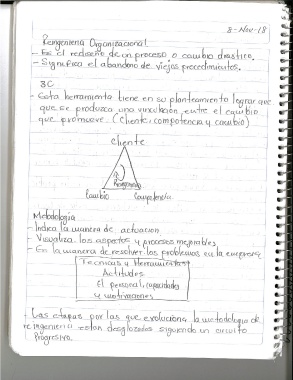 8-Nov-18
Reingenieria Organizacional
- Es el rediseño de un proceso o cambio drastico.
- Significa el abandono de viejos procedimientos.
3C
- Esta herramienta tiene en su planteamiento lograr que
que se produzca una vinculación entre el equilibrio
que promueve (Cliente, competencia y cambio)
Cliente
Reingenieria
Cambio Competencia
Metodologia
- Indica la manera de actuacion
- Visualiza los aspectos y procesos mejorables
- En la manera de resolver los problemas en la empresa
Tecnicas y Herramientas
Actitudes
el personal, capacidades
y motivaciones
- Las etapas por las que evoluciona la metodologia de
reingenieria estan desglozadas siguiendo un circuito
Progresivo.